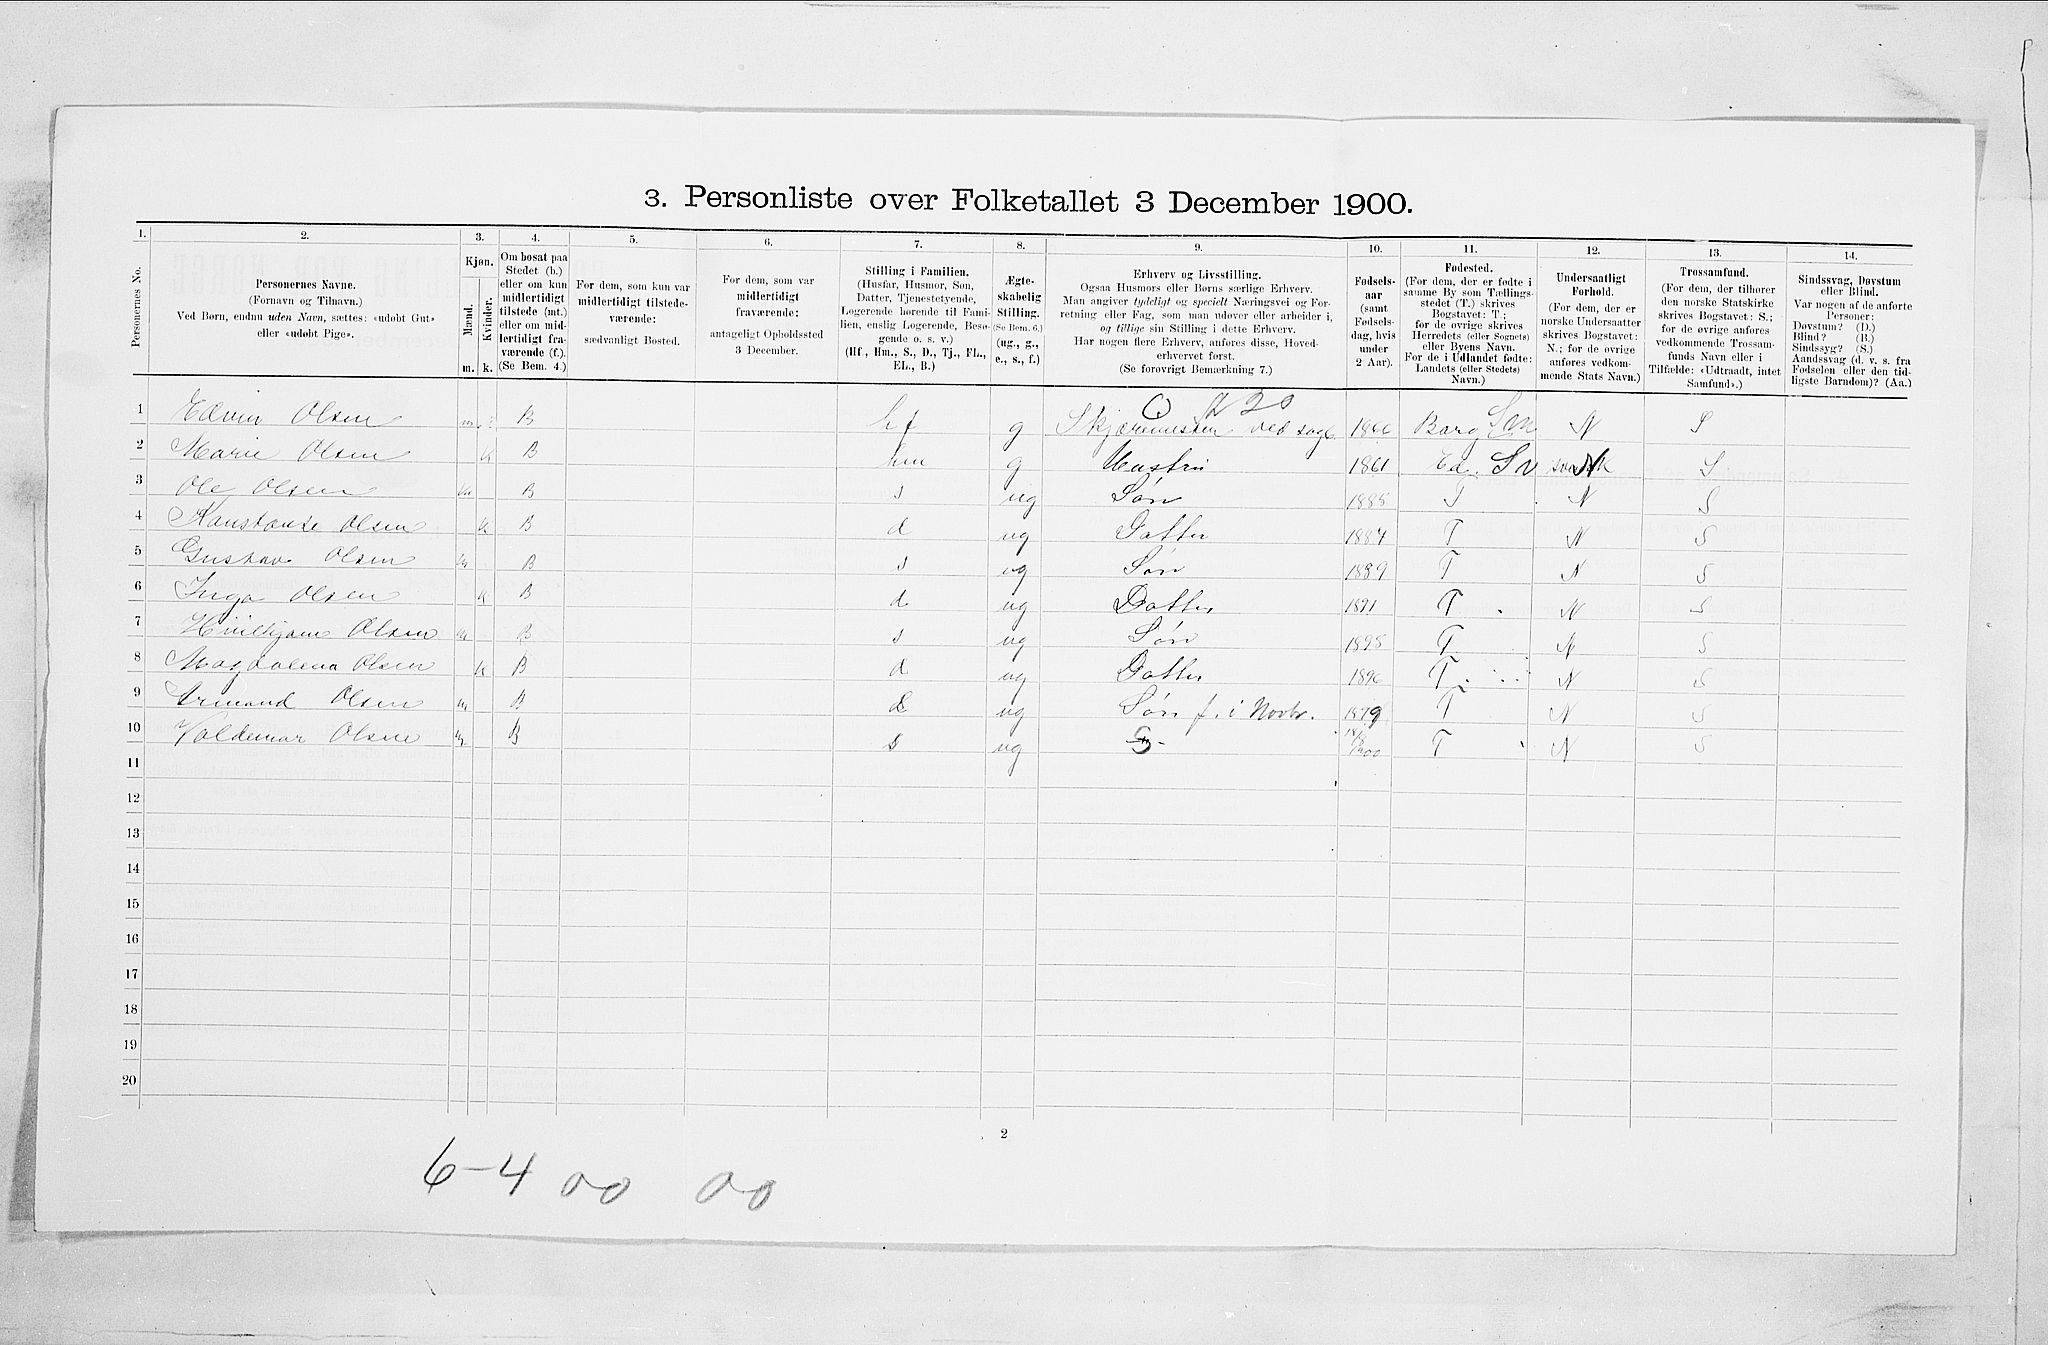 3. Personliste over Folketallet 3 December 1900.
1. 2. 3. 4. 5. 6. 7. 8. 9. 10. 11. 12. 13. 14.
Personernes No.
Personernes Navne.
(Fornavn og Tilnavn.)
Ved Børn, endnu uden Navn, sættes: «udøbt Gut»
eller «udøbt Pige».
Kjøn.
Mænd.
Kvinder.
m. k.
Om bosat paa
Stedet (b.)
eller om kun
midlertidigt
tilstede (mt.)
eller om mid-
lertidigt fra-
værende (f.).
(Se Bem. 4.)
For dem, som kun var
midlertidigt tilstede-
værende:
sædvanligt Bosted.
For dem, som var
midlertidigt
fraværende:
antageligt Opholdssted
3 December.
Stilling i Familien.
(Husfar, Husmor, Søn,
Datter, Tjenestetyende,
Logerende hørende til Fami-
lien, enslig Logerende, Besø-
gende o. s. v.)
(Hf., Hm., S., D., Tj., FL.,
EL., B.)
Ægte-
skabelig
Stilling.
(Se Bem. 6.)
(ug., g.,
e., s., f.)
Erhverv og Livsstilling.
Ogsaa Husmors eller Børns særlige Erhverv.
Man angiver tydeligt og specielt Næringsvei og For-
retning eller Fag, som man udøver eller arbeider i,
og tillige sin Stilling i dette Erhverv.
Har nogen flere Erhverv, anføres disse, Hoved-
erhvervet først.
(Se forøvrigt Bemærkning 7.)
Fødsels-
aar
(samt
Fødsels-
dag, hvis
under
2 Aar).
Fødested.
(For dem, der er fødte i
samme By som Tællings-
stedet (T.) skrives
Bogstavet: T ;
for de øvrige skrives
Herredets (eller Sognets)
eller Byens Navn.
For de i Udlandet fødte:
Landets (eller Stedets)
Navn.)
Undersaatligt
Forhold.
(For dem, der er
norske Undersaatter
skrives Bogstavet:
N.; for de øvrige
anføres vedkom-
mende Stats Navn.)
Trossamfund.
(For dem, der tilhører
den norske Statskirke
skrives Bogstavet: S.;
for de øvrige anføres
vedkommende Trossam-
funds Navn eller i
Tilfælde: «Udtraadt, intet
Samfund».)
Sindssvag, Døvstum
eller Blind.
Var nogen af de anførte
Personer:
Døvstum? (D.)
Blind? (B.)
Sindssyg? (S.)
Aandssvag (d. v. s. fra
Fødselen eller den tid-
ligste Barndom)? (Aa.)
1 Edvin Olsen m. B hf g Skjæremester ved sagb. 1866 Borg N S
2 Marie Olsen k B hm g Hustru 1861 Ed. Sv N S
3 Ole Olsen m B s ug Søn 1885 T N S
4 Konstanse Olsen k B d ug Datter 1887 T N S
5 Gustav Olsen m B s ug Søn 1889 T N S
6 Inga Olsen k B d ug Datter 1891 T N S
7 Olsen m B s ug Søn 1895 T N S
8 Magdalena Olsen k B d ug Datter 1896 T N S
9 Armand Olsen m B ug Søn f. i Novbr. T N S
10 Valdemar Olsen m B s ug T N S
11
12
13
14
15
16
17
18
19
20
2
6–4 00 00